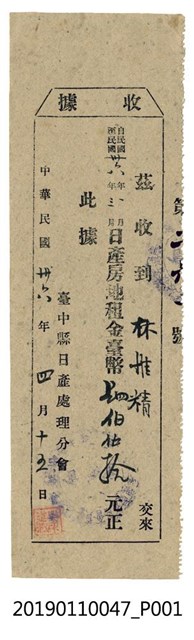 收據
茲收到 林 精 交來
自民國卅六年一月
至民國 年三月
日產房地租金臺幣 伯 拾 元正
此據
臺中縣日產處理分會
中華民國卅六年四月十五日
第 號
20190110047_P001